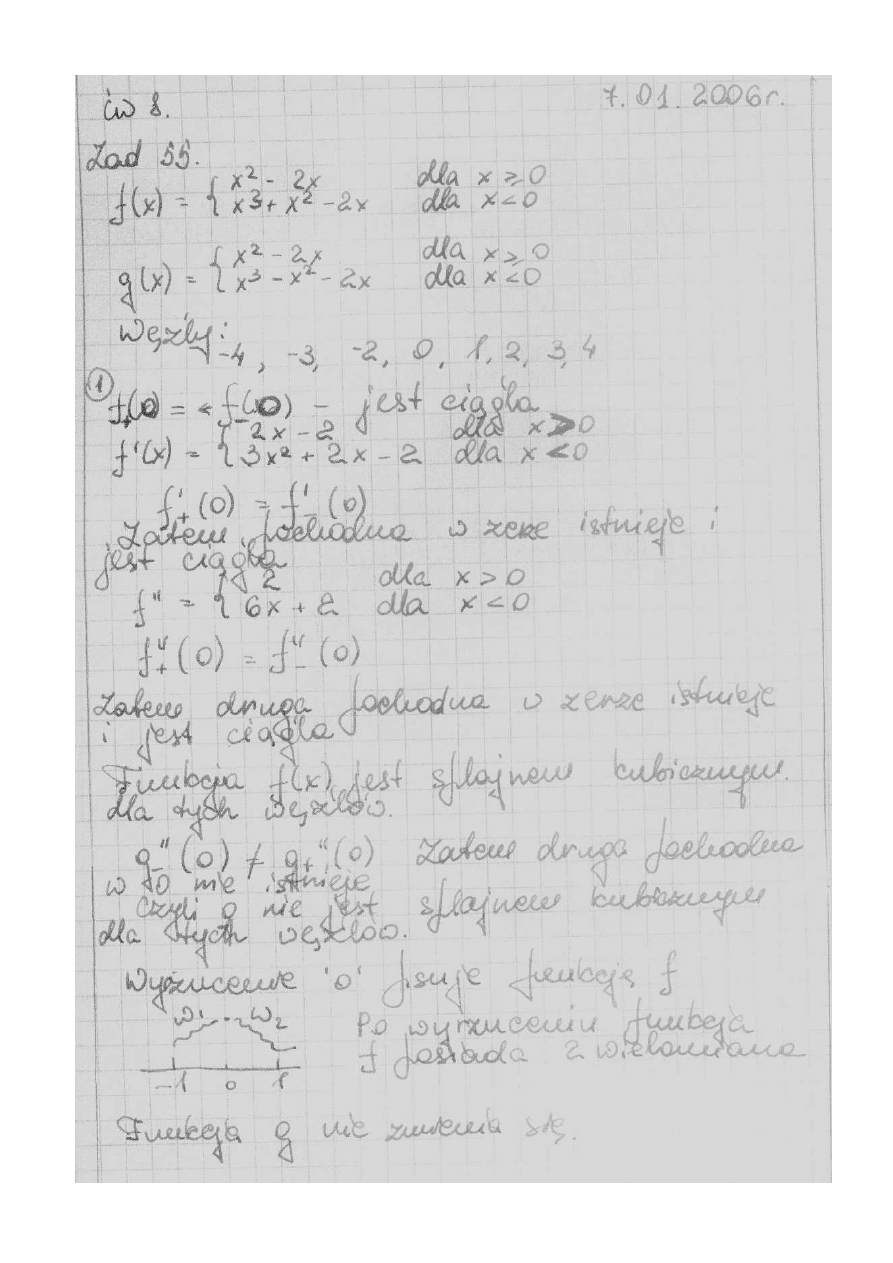 ćw 8.
7.01.2006r.
Zad 55.
f(x) = { x² - 2x dla x ≥ 0
x³ + x² - 2x dla x < 0
g(x) = { x² - 2x dla x ≥ 0
x³ - x² - 2x dla x < 0
Węzły:
-4, -3, -2, 0, 1, 2, 3, 4
①
f₊(0) = f₋(0) - jest ciągła
f'(x) = { 2x - 2 dla x > 0
3x² + 2x - 2 dla x < 0
f'₊(0) = f'₋(0)
Zatem pochodna w zerze istnieje i
jest ciągła
f'' = { 2 dla x > 0
6x + 2 dla x < 0
f''₊(0) = f''₋(0)
Zatem druga pochodna w zerze istnieje
i jest ciągła
Funkcja f(x) jest splajnem kubicznym
dla tych węzłów.
g''₋(0) ≠ g''₊(0) Zatem druga pochodna
w 0 nie istnieje
czyli g nie jest splajnem kubicznym
dla tych węzłów.
Wyrzucenie '0' psuje funkcję f
w₁ w₂
-1 0 1
Po wyrzuceniu funkcja
f posiada 2 wielomiana
Funkcja g nie zmienia się.